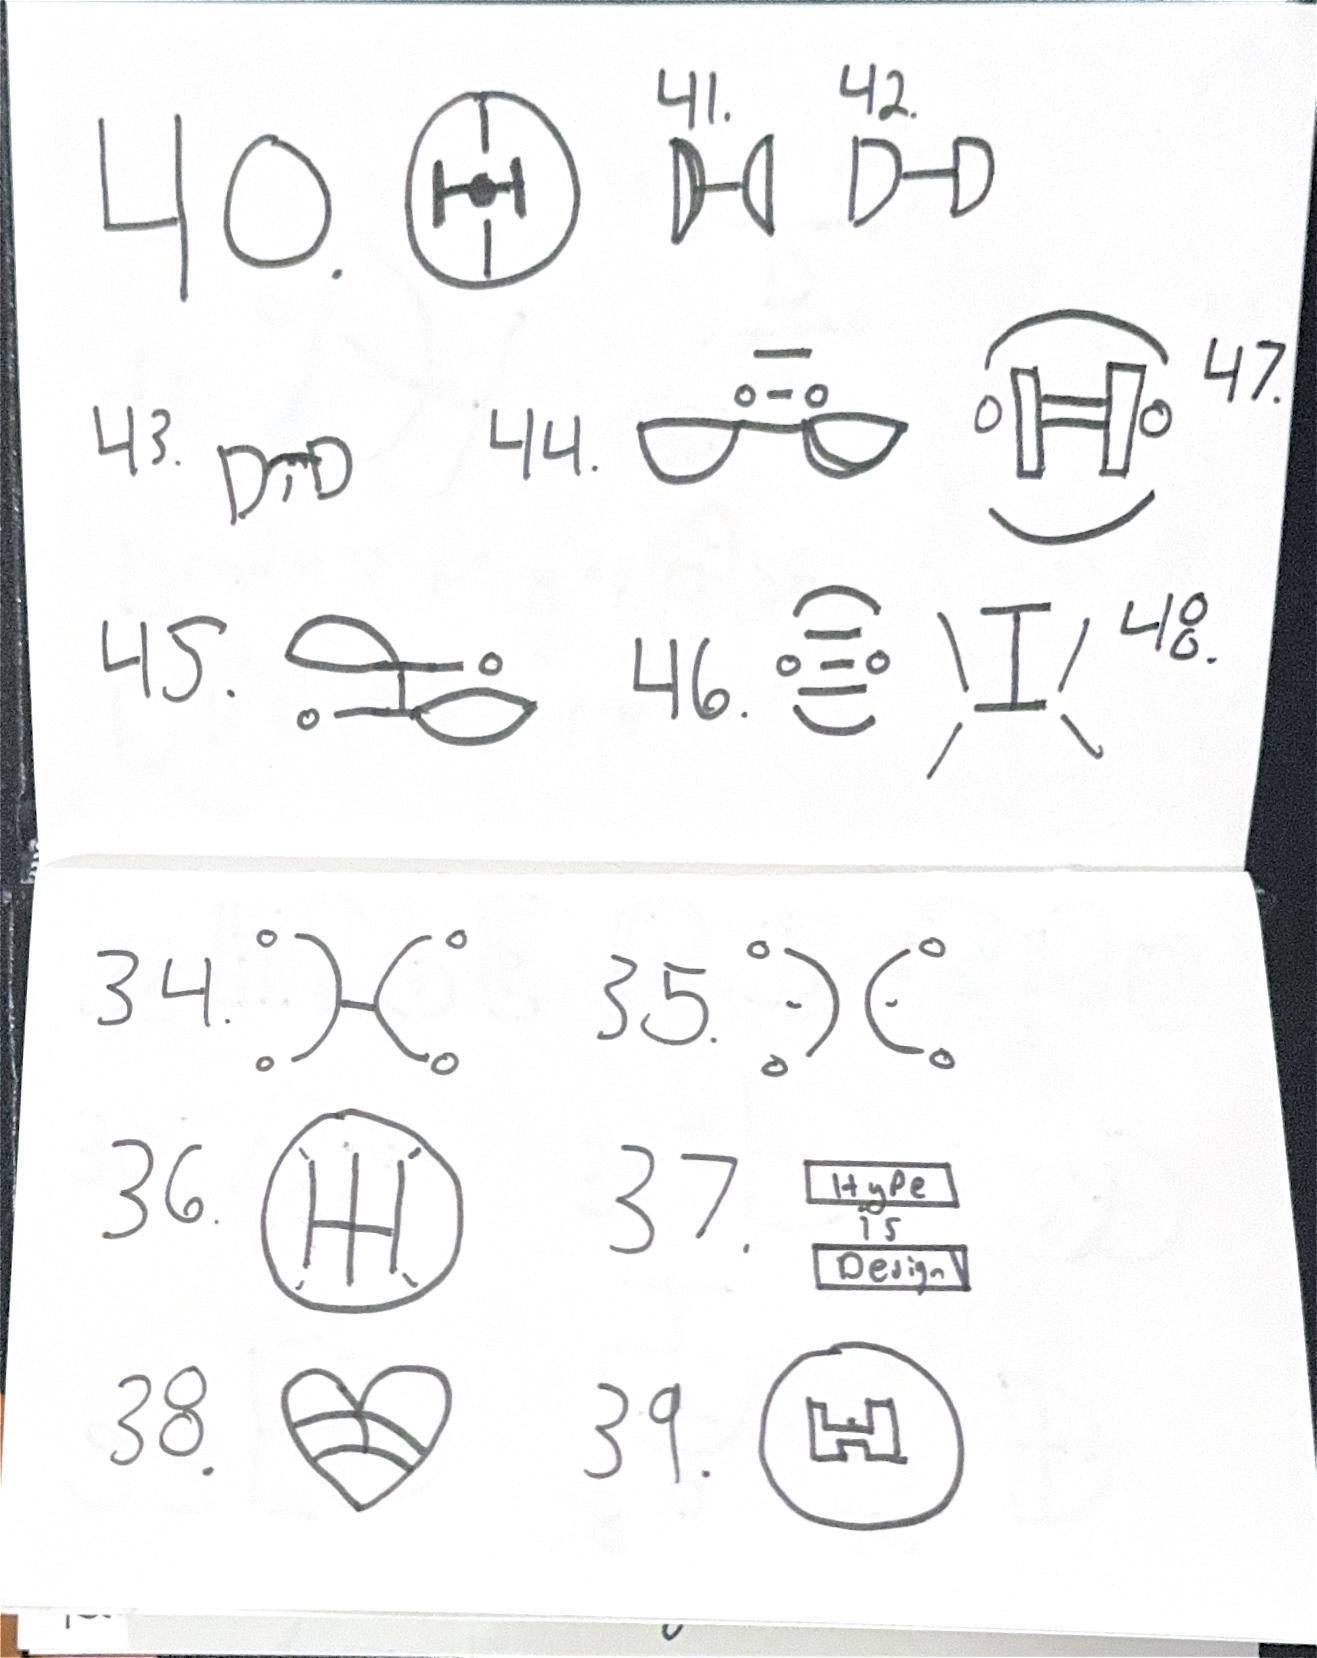 40. 41. 42.
43. 44. 47.
45. 46. 48.
34. 35.
36. 37. Hype
is
Design
38. 39. H